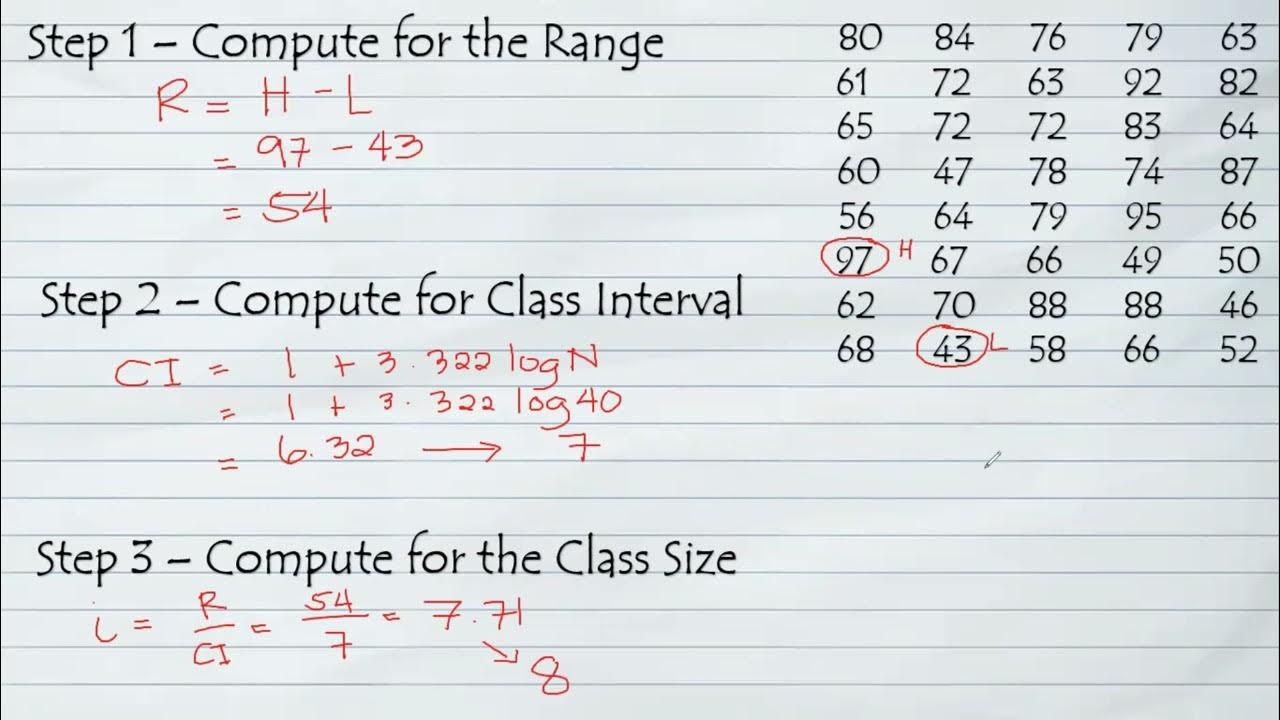 Step 1 – Compute for the Range
R = H - L
= 97 - 43
= 54
Step 2 – Compute for Class Interval
CI = 1 + 3.322 log N
= 1 + 3.322 log 40
= 6.32 → 7
Step 3 – Compute for the Class Size
i = R/CI = 54/7 = 7.71
↘ 8
80 84 76 79 63
61 72 63 92 82
65 72 72 83 64
60 47 78 74 87
56 64 79 95 66
97 H 67 66 49 50
62 70 88 88 46
68 43 L 58 66 52